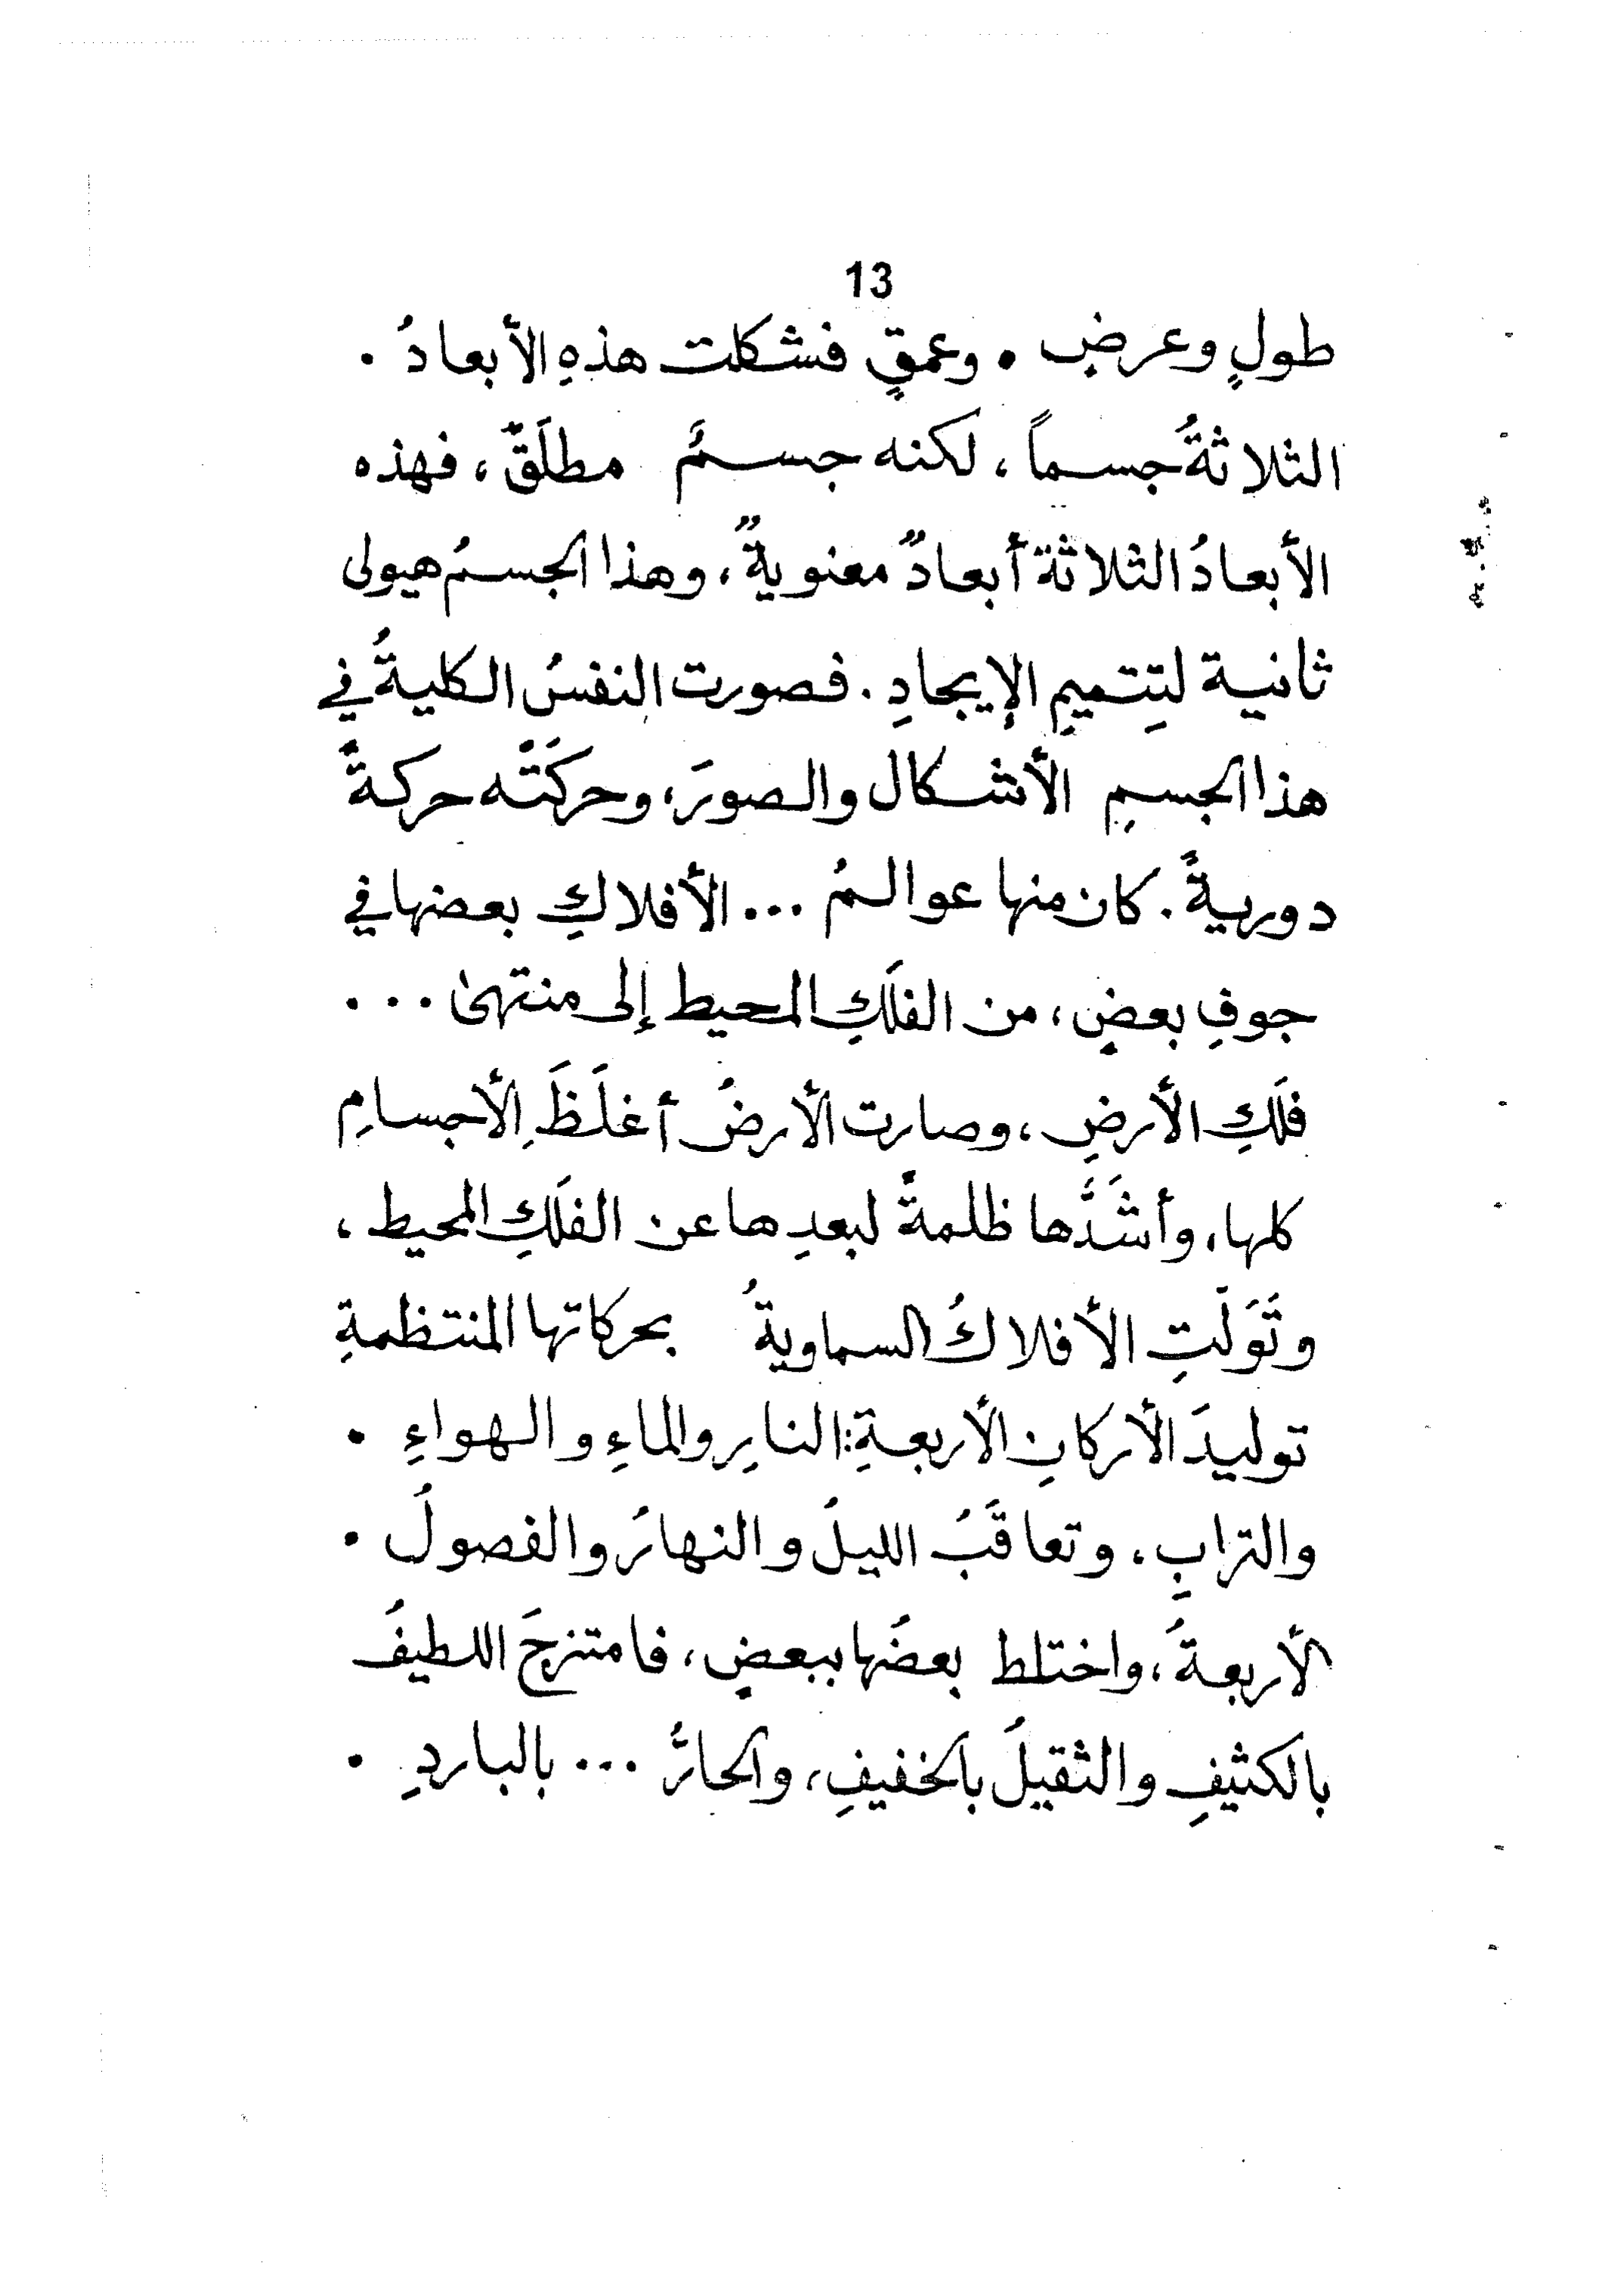 13
طولٍ وعرضٍ . وعمقٍ فشكلت هذهِ الأبعادُ .
الثلاثةُ جسماً ، لكنه جسمٌ مطلَقٌ ، فهذه
الأبعادُ الثلاثة أبعادٌ معنويةٌ ، وهذا الجسمُ هيولى
ثانية لتِتميمِ الإيجادِ . فصورت النفسُ الكليةُ في
هذا الجسمِ الأشكال والصورَ ، وحركَتْه حركةً
دوريةً . كان منها عوالمُ ... الأفلاكِ بعضها في
جوفِ بعضٍ ، من الفلَكِ المحيط إلى منتهىٰ ...
فلَكِ الأرضِ ، وصارت الأرضُ أغلَظَ الأجسامِ
كلها ، وأشَدَّها ظلمةً لبعدِها عن الفلَكِ المحيط ،
وتَوَلَّتِ الأفلاكُ السماويةُ بحركاتها المنتظمةِ
توليدَ الأركانِ الأربعةِ : النارِ والماءِ والهواءِ .
والترابِ ، وتعاقَبُ الليلُ والنهارُ والفصولُ .
الأربعةُ ، واختلط بعضُها ببعضٍ ، فامتزجَ اللطيفُ
بالكثيفِ والثقيلُ بالخفيفِ ، والحارُّ ... بالباردِ .